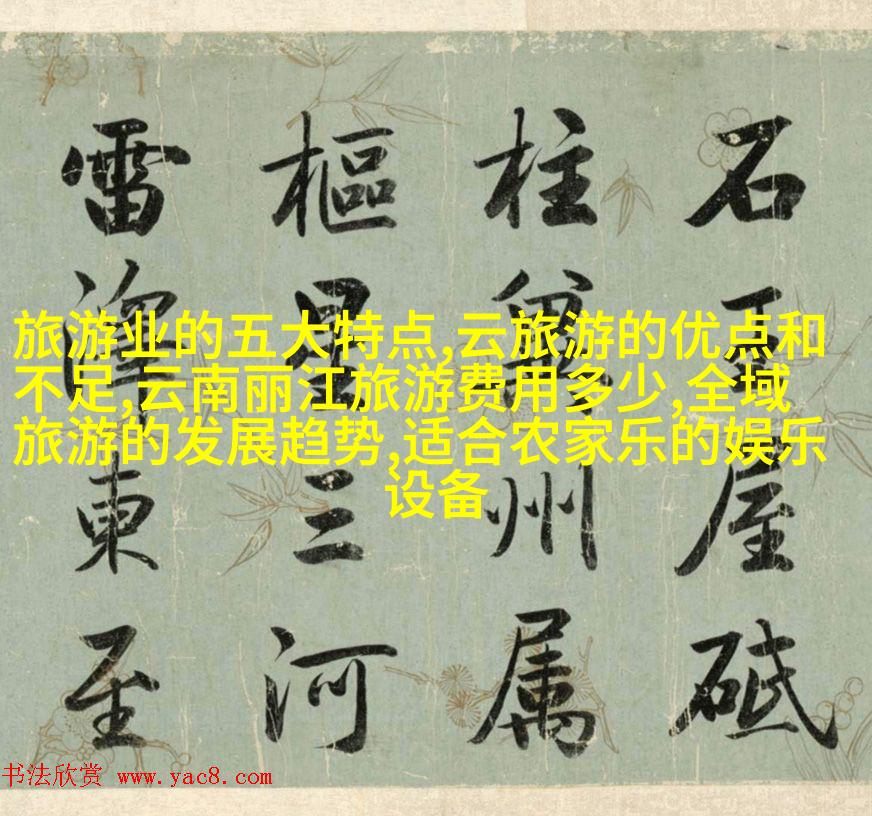 石王屋砥
柱冀州属
樞星三河
雷澤東至
旅游业的五大特点,云旅游的优点和
不足,云南丽江旅游费用多少,全域
旅游的发展趋势,适合农家乐的娱乐
设备
书法欣赏 www.yac8.com